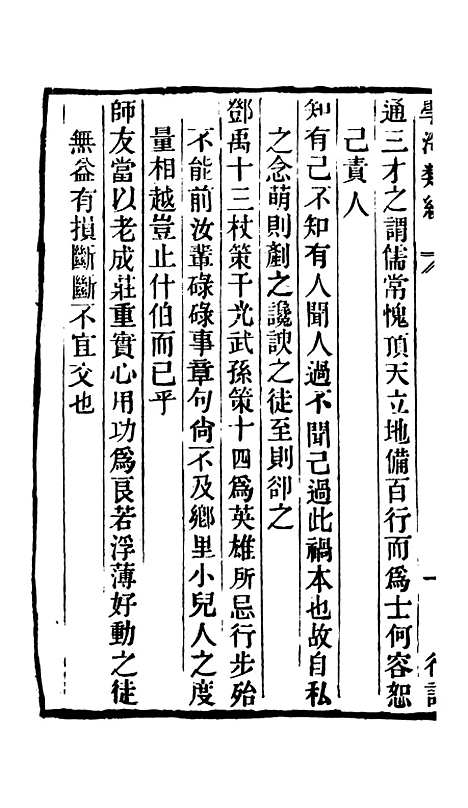 學海類編
一
行訓
通三才之謂儒常愧頂天立地備百行而爲士何容恕
己責人
知有己不知有人聞人過不聞己過此禍本也故自私
之念萌則剷之讒諛之徒至則卻之
鄧禹十三杖策干光武孫策十四爲英雄所忌行步殆
不能前汝輩碌碌事章句尙不及鄉里小兒人之度
量相越豈止什伯而已乎
師友當以老成莊重實心用功爲良若浮薄好動之徒
無益有損斷斷不宜交也